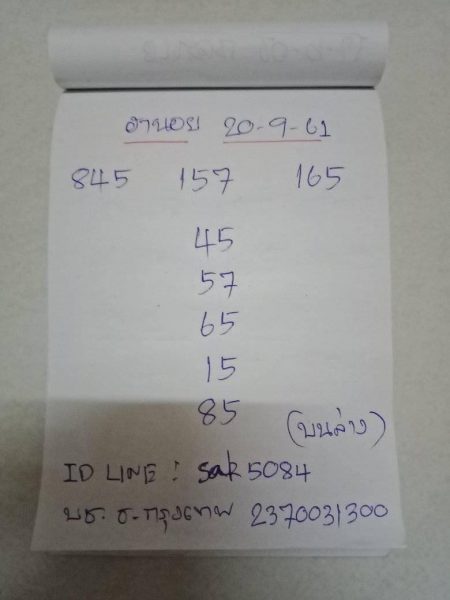 ฮานอย 20-9-61
845 157 165
45
57
65
15
85 (บนล่าง)
ID LINE : sak5084
บช. ธ.กรุงเทพ 2370031300